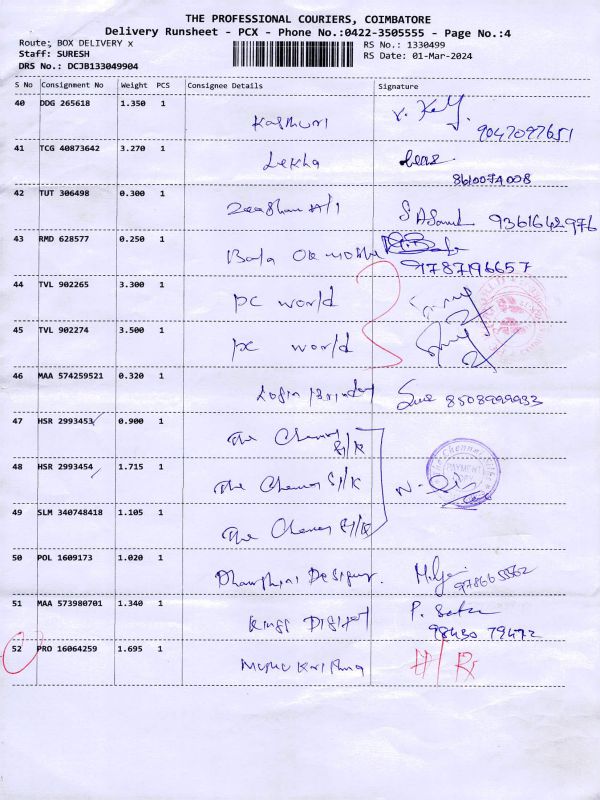 THE PROFESSIONAL COURIERS, COIMBATORE
Delivery Runsheet - PCX - Phone No.:0422-3505555 - Page No.:4
Route: BOX DELIVERY x
RS No.: 1330499
Staff: SURESH
RS Date: 01-Mar-2024
DRS No.: DCJB133049904
S No Consignment No Weight PCS Consignee Details Signature
40 DDG 265618 1.350 1 Kasthuri
9047097651
41 TCG 40873642 3.270 1 Lekha
42 TUT 306498 0.300 1 9361642976
43 RMD 628577 0.250 1 Bala
9787196657
44 TVL 902265 3.300 1 PC world
45 TVL 902274 3.500 1 PC world
46 MAA 574259521 0.320 1 Login 8508999933
47 HSR 2993453 0.900 1 The Chennai
S/K
48 HSR 2993454 1.715 1 The Chennai S/K
PAYMENT
49 SLM 340748418 1.105 1 The Chennai S/K
50 POL 1609173 1.020 1 Dharshini Designer.
51 MAA 573980701 1.340 1 Kings Digital
98430 79472
52 PRO 16064259 1.695 1 Muthu Krishna